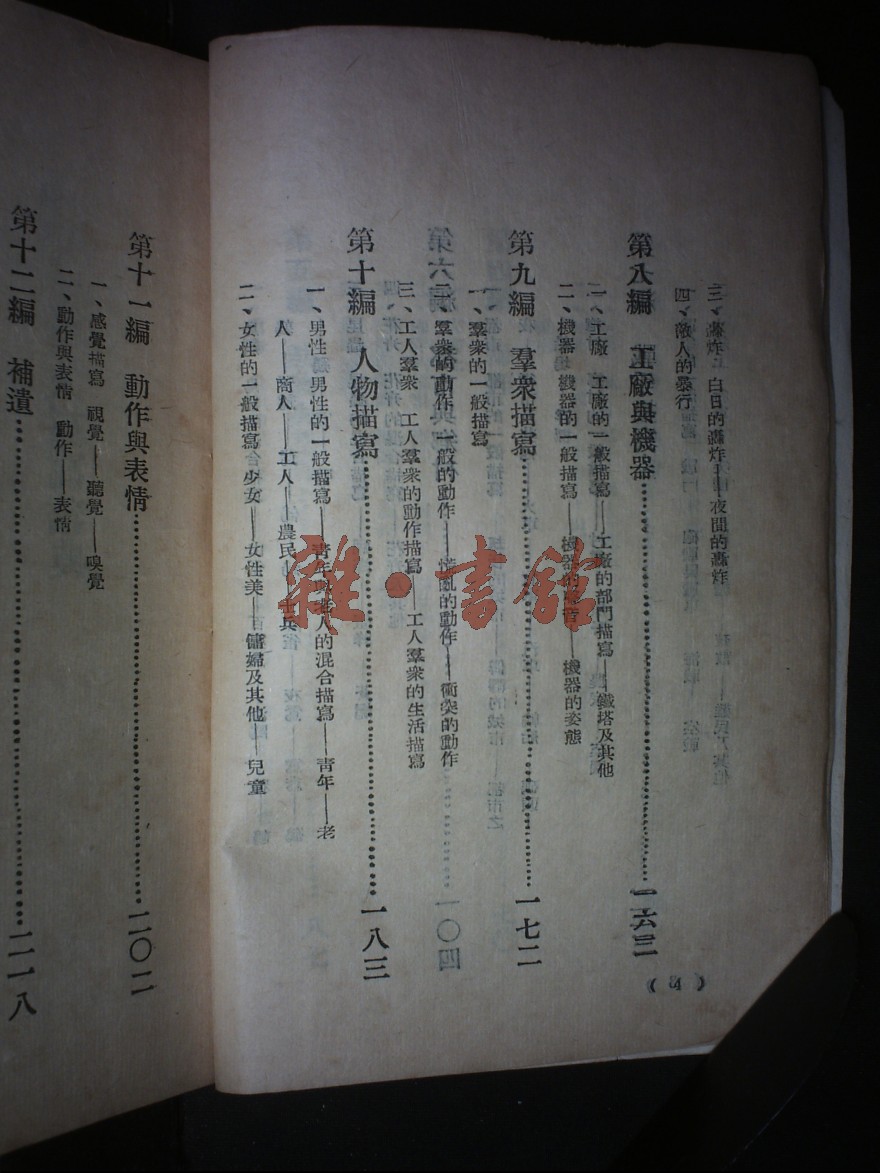 三、轟炸 白日的轟炸——夜間的轟炸
四、敵人的暴行
第八編 工廠與機器……一六三
一、工廠 工廠的一般描寫——工廠的部門描寫——鐵塔及其他
二、機器 機器的一般描寫——機器的聲音——機器的姿態
第九編 羣衆描寫……一七二
一、羣衆的一般描寫
二、羣衆的動作 一般的動作——慌亂的動作——衝突的動作
三、工人羣衆 工人羣衆的動作描寫——工人羣衆的生活描寫
第十編 人物描寫……一八三
一、男性 男性的一般描寫——青年與老人的混合描寫——青年——老
人——商人——工人——農民——士兵
二、女性的一般描寫——少女——女性美——傭婦及其他——兒童
(3)
第十一編 動作與表情……二〇二
一、感覺描寫 視覺——聽覺——嗅覺
二、動作與表情 動作——表情
第十二編 補遺……二一八
雜·書館